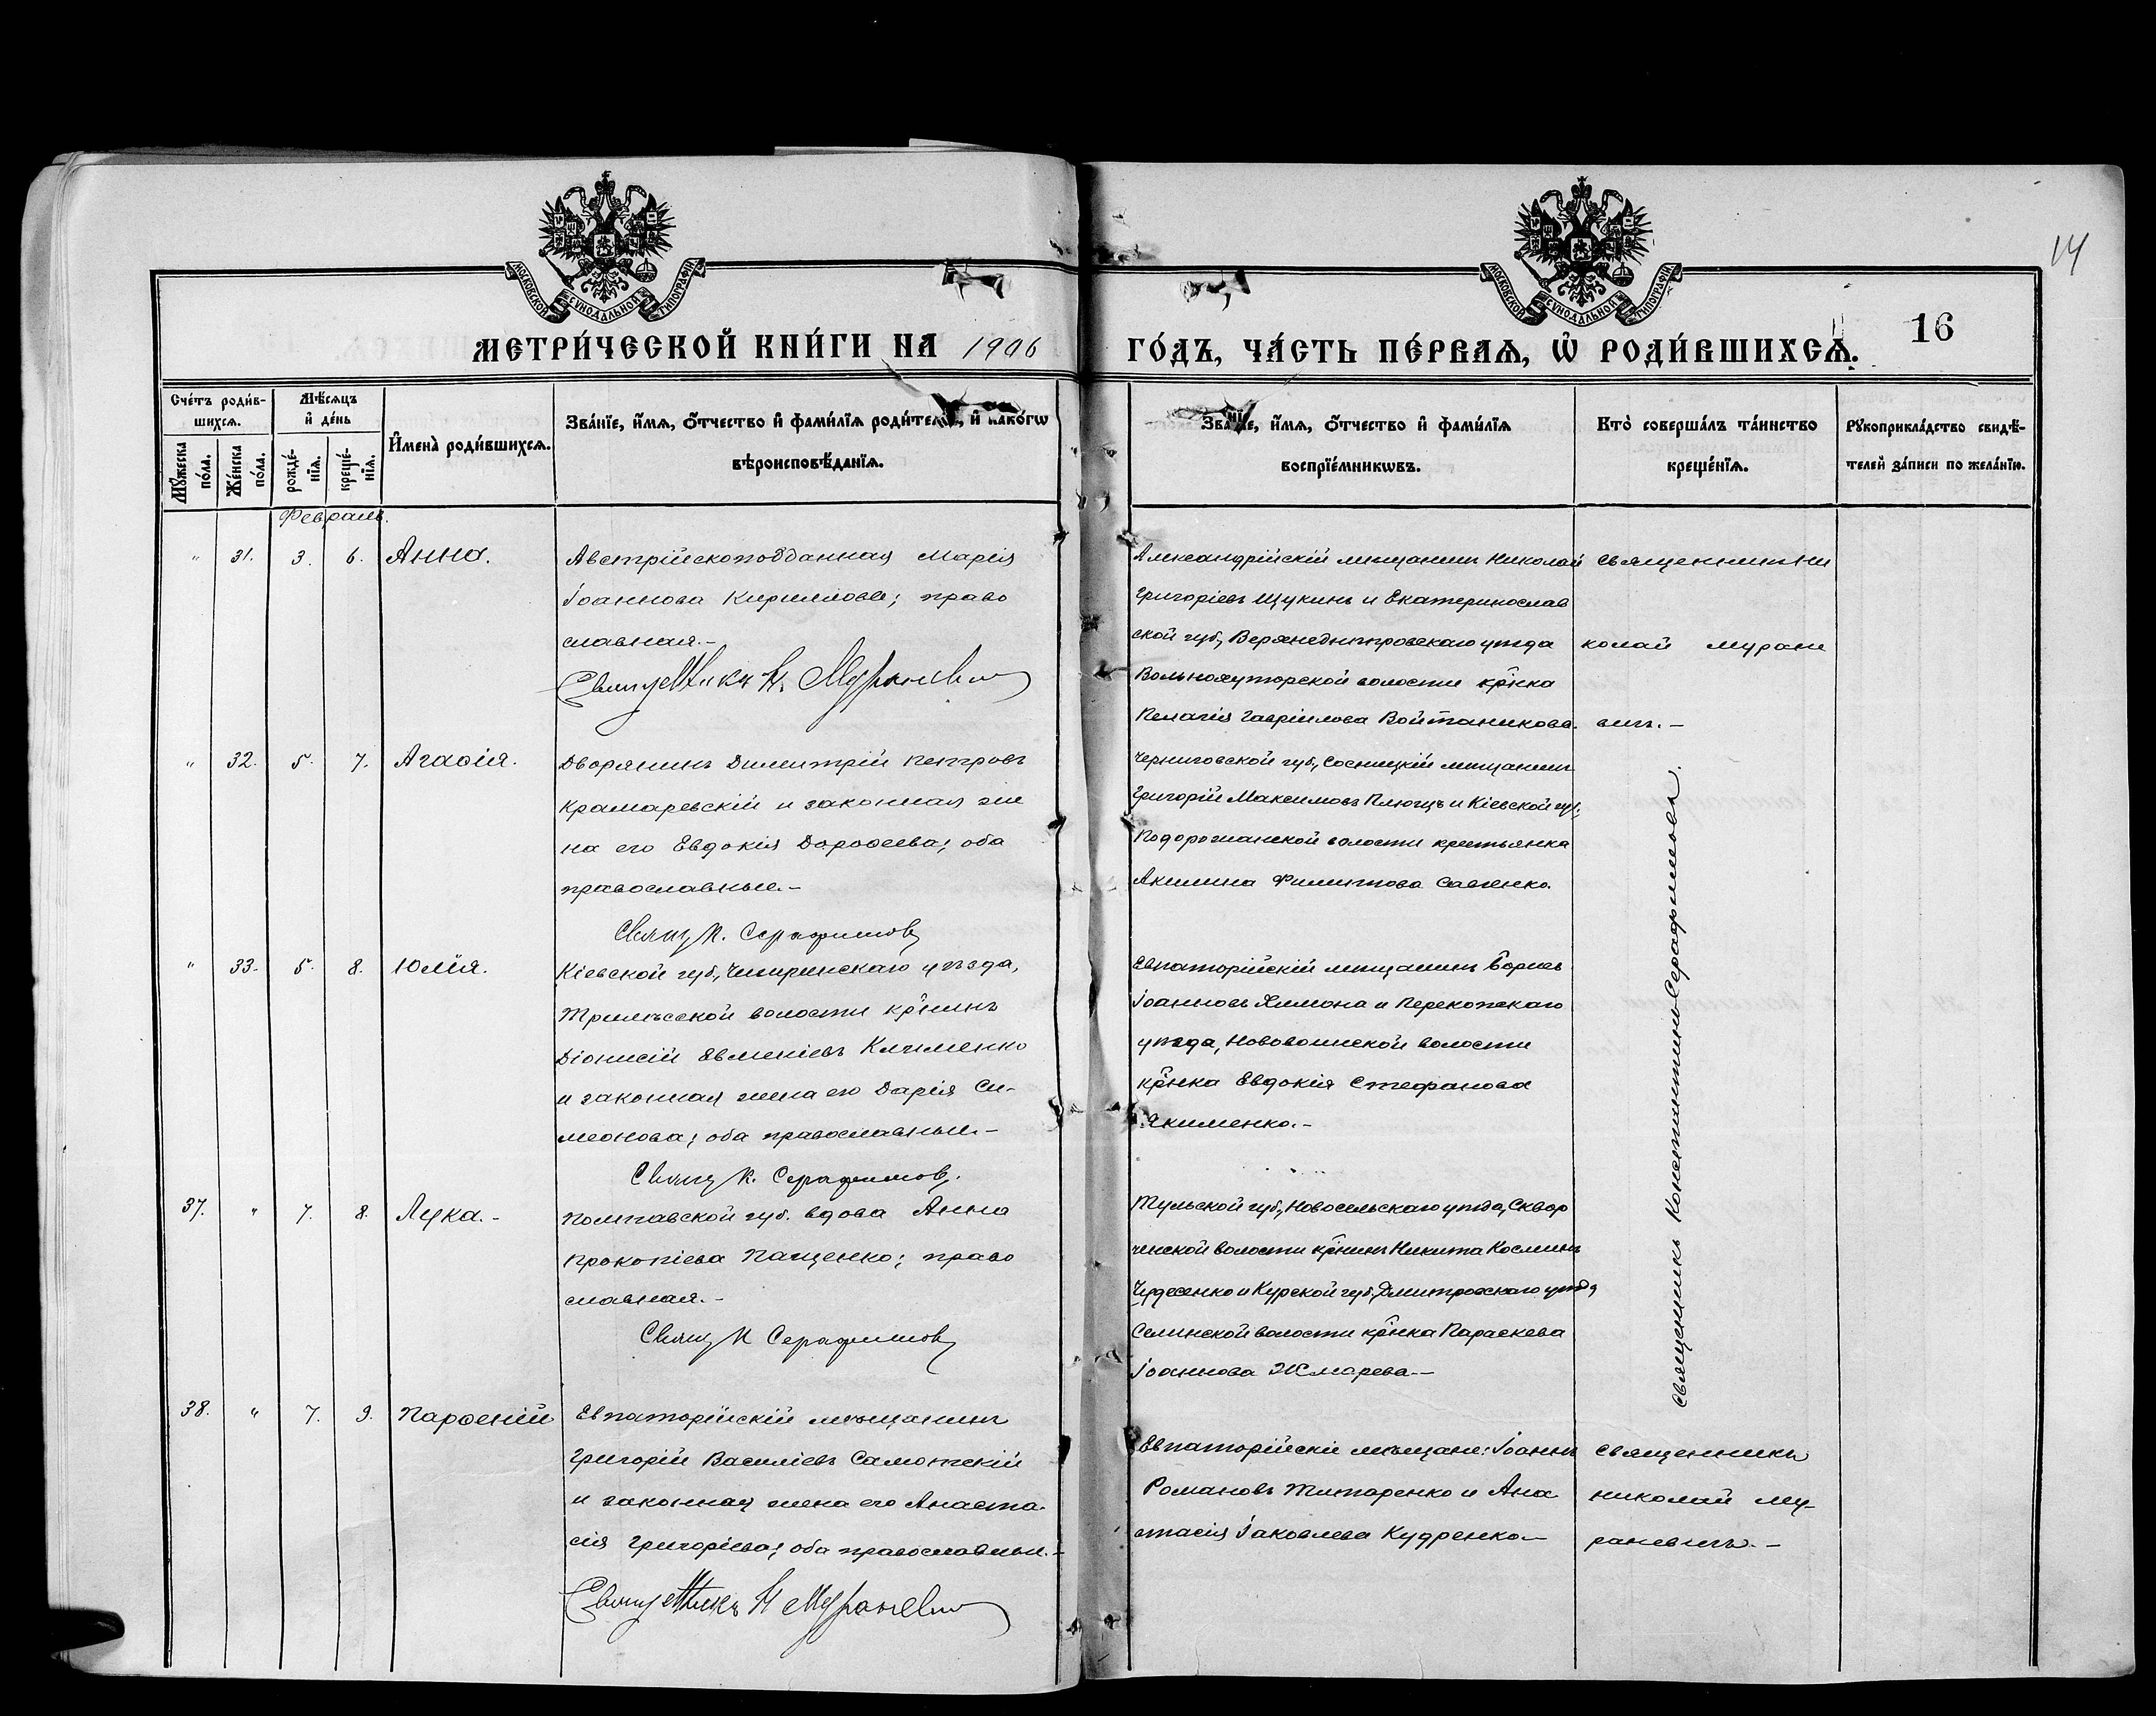 14
МОСКОВСКОЙ СѴНОДАЛЬНОЙ ТИПОГРАФІИ
МОСКОВСКОЙ СѴНОДАЛЬНОЙ ТИПОГРАФІИ
16
МЕТРИ́ЧЕСКОЙ КНИ́ГИ НА 1906 ГО́ДЪ, ЧА́СТЬ ПЕ́РВАЯ, Ѡ РОДИ́ВШИХСѦ.
Сче́тъ роди́в-
шихсѧ.
Мѣ́сѧцъ
и҆ де́нь
Мꙋ́жеска
по́ла.
Же́нска
по́ла.
рожде́-
нїѧ.
креще́-
нїѧ.
И҆мена̀ роди́вшихсѧ.
Зва́нїе, и҆́мѧ, ѻ҆́тчество и҆ фамѝлїѧ роди́телей, и҆ како́гѡ
вѣроисповѣ́данїѧ.
Зва́нїе, и҆́мѧ, ѻ҆́тчество и҆ фамѝлїѧ
воспрїе́мникѡвъ.
Кто̀ соверша́лъ та́инство
креще́нїѧ.
Рꙋкоприкла́дство свидѣ́-
телей за́писи по жела́нїю.
Февраль.
" 31. 3. 6. Анна.
Австрійскоподданная Марія
Іоаннова Кириллова; право
славная.-
Священникъ Н. Мураневич
Александрійскій мѣщанинъ Николай
Григоріевъ Щукинъ и Екатеринослав
ской губ., Верхнеднѣпровскаго уѣзда
Вольнохуторской волости кр̂нка
Пелагія Гавріилова Войтаникова.
Священникъ Ни
колай Муране
вичъ.-
" 32. 5. 7. Агаѳія.
Дворянинъ Димитрій Петровъ
Крамаревскій и законная же
на его Евдокія Дороѳеева; оба
православные.-
Свящ. К. Серафимовъ
Черниговской губ., Сосницкій мѣщанинъ
Григорій Максимовъ Плющъ и Кіевской губ.,
волости крестьянка
Акилина Филиппова Савченко.
Священникъ Константинъ Серафимовъ.
" 33. 5. 8. Юлія.
Кіевской губ., Чигиринскаго уѣзда,
Трилѣсской волости кр̂нинъ
Діонисій Евменіевъ Клименко
и законная жена его Дарія Си-
меонова; оба православные.-
Свящ. К. Серафимовъ.
Евпаторійскій мѣщанинъ Борисъ
Іоанновъ и Перекопскаго
уѣзда, волости
кр̂нка Евдокія Стефанова
Якименко.-
37. " 7. 8. Лука.-
Полтавской губ. вдова Анна
Прокопіева Пащенко; право
славная.-
Свящ К Серафимовъ
Тульской губ., Новосельскаго уѣзда, Сквор
ченской волости кр̂нинъ Никита Косминъ
Чудесенко и Курской губ., Дмитровскаго уѣзда
Селинской волости кр̂нка Параскева
Іоаннова Жмарева.-
38. " 7. 9. Парѳеній
Евпаторійскій мѣщанинъ
Григорій Василіевъ
и законная жена его Анаста-
сія Григоріева; оба православные.-
Священникъ Н Мураневич
Евпаторійскіе мѣщане: Іоаннъ
Романовъ Титаренко и Ана
стасія Іаковлева Кудренко.-
Священникъ
Николай Му-
раневичъ.-